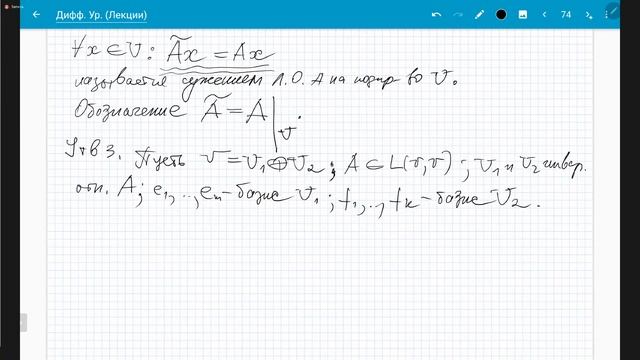 Дифф. Ур. (Лекции)
74
∀x ∈ U: Ãx = Ax
называется сужением Л.О. A на подпр-во U.
Обозначение Ã = A|_U.
Утв 3. Пусть V = U₁ ⊕ U₂; A ∈ L(V,V); U₁ и U₂ инвар.
отн. A; e₁,..,eₙ – базис U₁; f₁,..,fₖ – базис U₂.